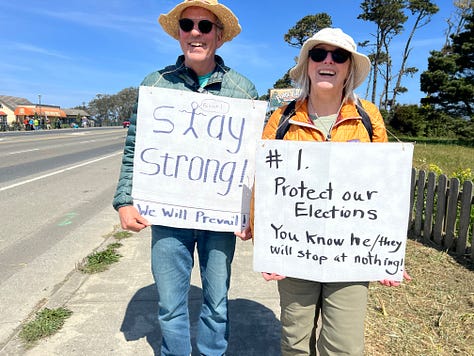 Stay
Strong!
We Will Prevail!
# 1.
Protect our
Elections
You know he/they
will stop at nothing!